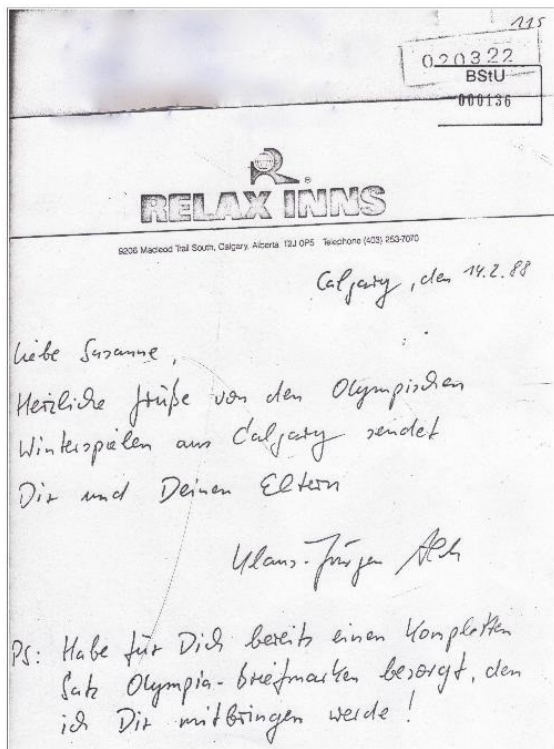 115
020322
BStU
000136
R
®
RELAX INNS
9206 Macleod Trail South, Calgary, Alberta T2J 0P5 Telephone (403) 253-7070
Calgary, den 14.2.88
Liebe Susanne,
Herzliche Grüße von den Olympischen
Winterspielen aus Calgary sendet
Dir und Deinen Eltern
Klaus-Jürgen
PS: Habe für Dich bereits einen kompletten
Satz Olympia-Briefmarken besorgt, den
ich Dir mitbringen werde!